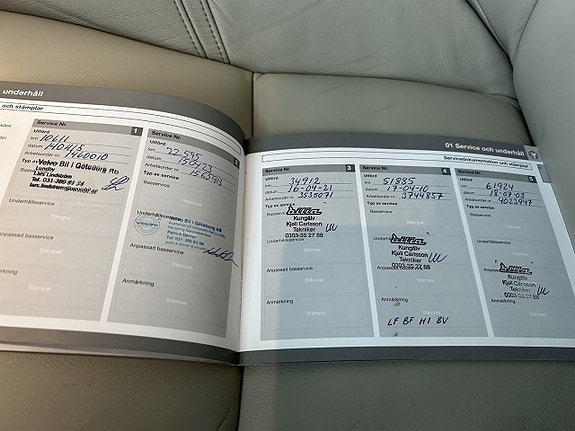 underhåll
och stämplar
Service Nr. 1
Utförd
km 10611
datum 140415
Arbetsorder nr 1460010
Typ av
Volvo Bil I Göteborg AB
Lundby
Lars Lindström
Tel. 031-380 81 24
Underhållsservice
Anpassad basservice
Stämpel
Anmärkning
Stämpel
Service Nr.
Utförd
km 22595
datum 150223
Arbetsorder nr
Typ av service
Basservice
Underhållsservice
Bil i Göteborg AB
Patrick Denner
Anpassad basservice
Stämpel
Anmärkning
Stämpel
01 Service och underhåll
Servicedokumentation och stämplar
Service Nr. 3
Utförd
km 34912
datum 16-04-21
Arbetsorder nr 3535071
Typ av service
Basservice
bilia
Kungälv
Kjell Carlsson
Tekniker
0303-35 27 88
Underhållsservice
Anpassad basservice
Stämpel
Anmärkning
Stämpel
Service Nr. 4
Utförd
km 51885
datum 17-04-10
Arbetsorder nr 3744857
Typ av service
Basservice
Underhållsservice
bilia
Kungälv
Kjell Carlsson
Tekniker
0303-35 27 88
Anpassad basservice
Stämpel
Anmärkning
LF BF HI BV
Service Nr.
Utförd
km 61924
datum 18-07-03
Arbetsorder nr 4023947
Typ av service
Basservice
Stämpel
Underhållsservice
Anpassad basservice
bilia
Kungälv
Kjell Carlsson
Tekniker
0303-35 27 88
Anmärkning
Stämpel